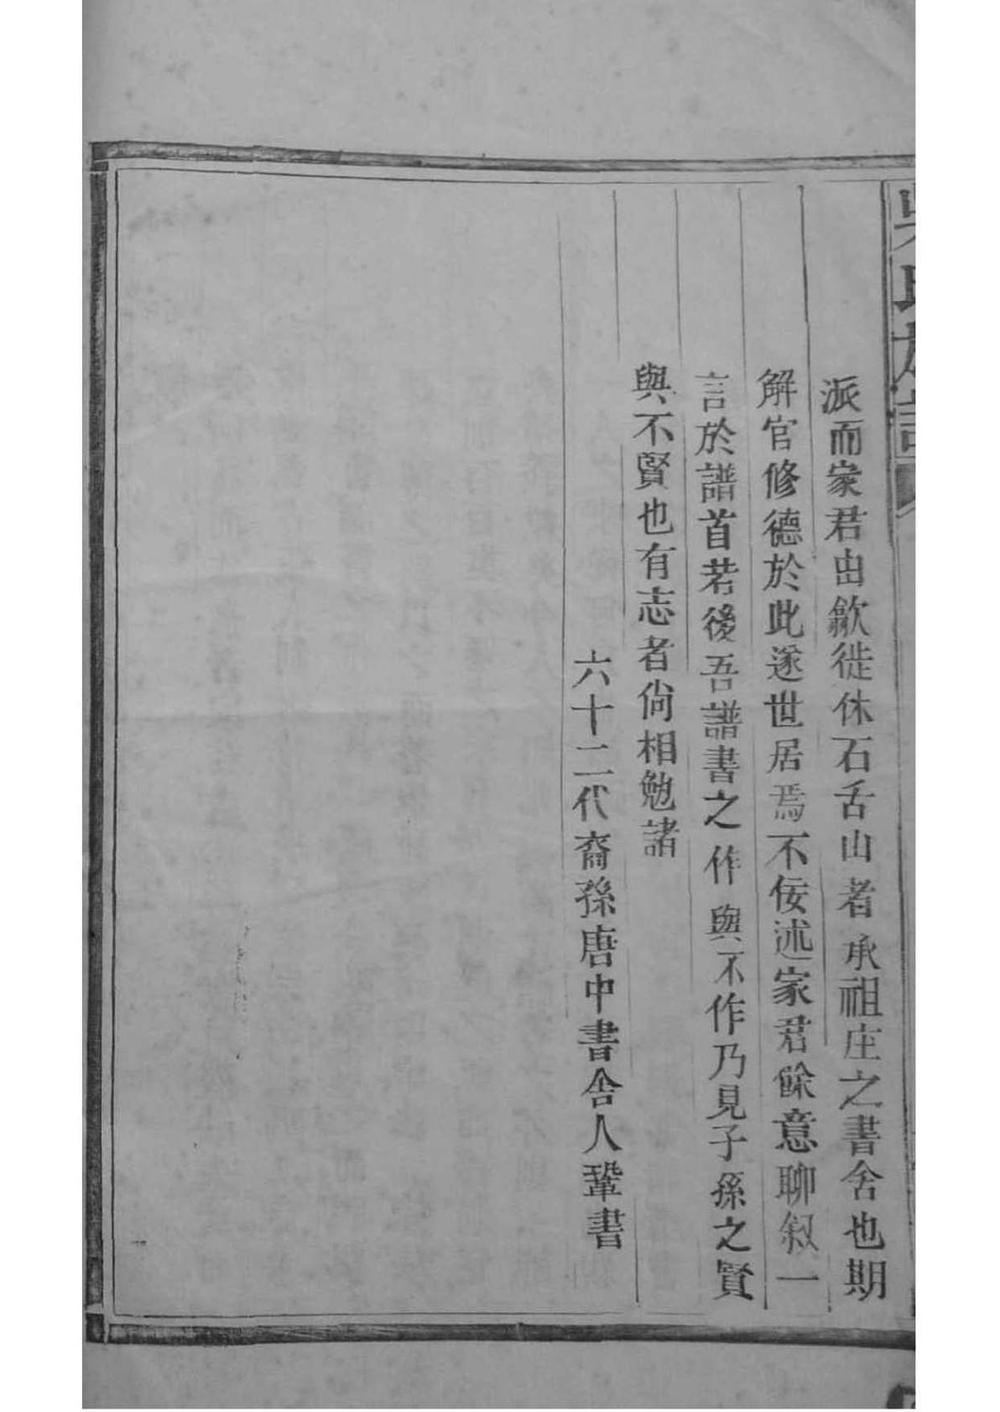 吳氏族譜
派而家君由歙徙休石舌山者承祖庄之書舍也期
解官修德於此遂世居焉不佞述家君餘意聊叙一
言於譜首若後吾譜書之作與不作乃見子孫之賢
與不賢也有志者尙相勉諸
六十二代裔孫唐中書舍人鞏書